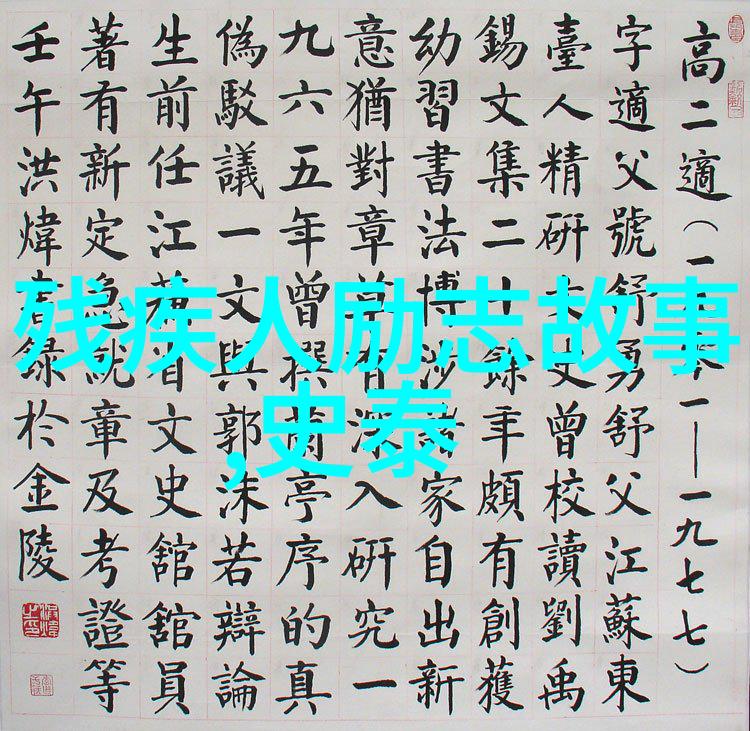 高二適（一九一—一九七七）
字適父號舒勇舒父江蘇東
臺人精研文史曾校讀劉禹
錫文集二十餘年頗有創獲
幼習書法博涉諸家自出新
意猶對章草有深入研究一
九六五年曾撰蘭亭序的真
偽駁議一文與郭沫若辯論
生前任江蘇省文史館館員
著有新定急就章及考證等
壬午洪煒書錄於金陵
残疾人励志故事
,史泰